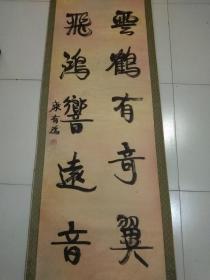 雲鶴有奇翼
飛鴻響遠音
康有為